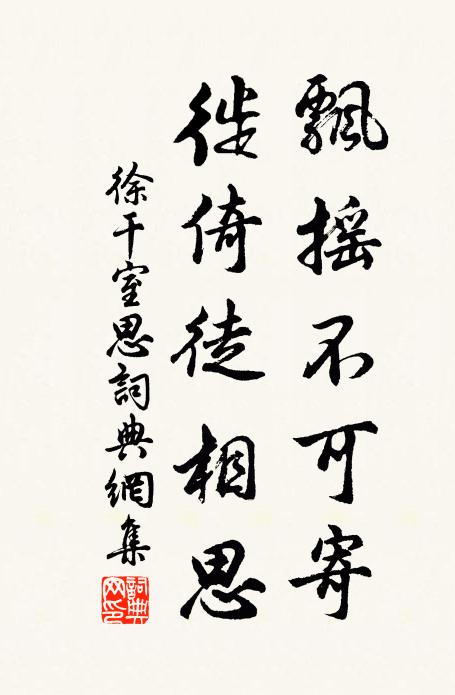 飄摇不可寄
徙倚徒相思
徐干室思詞典網集
詞典網印